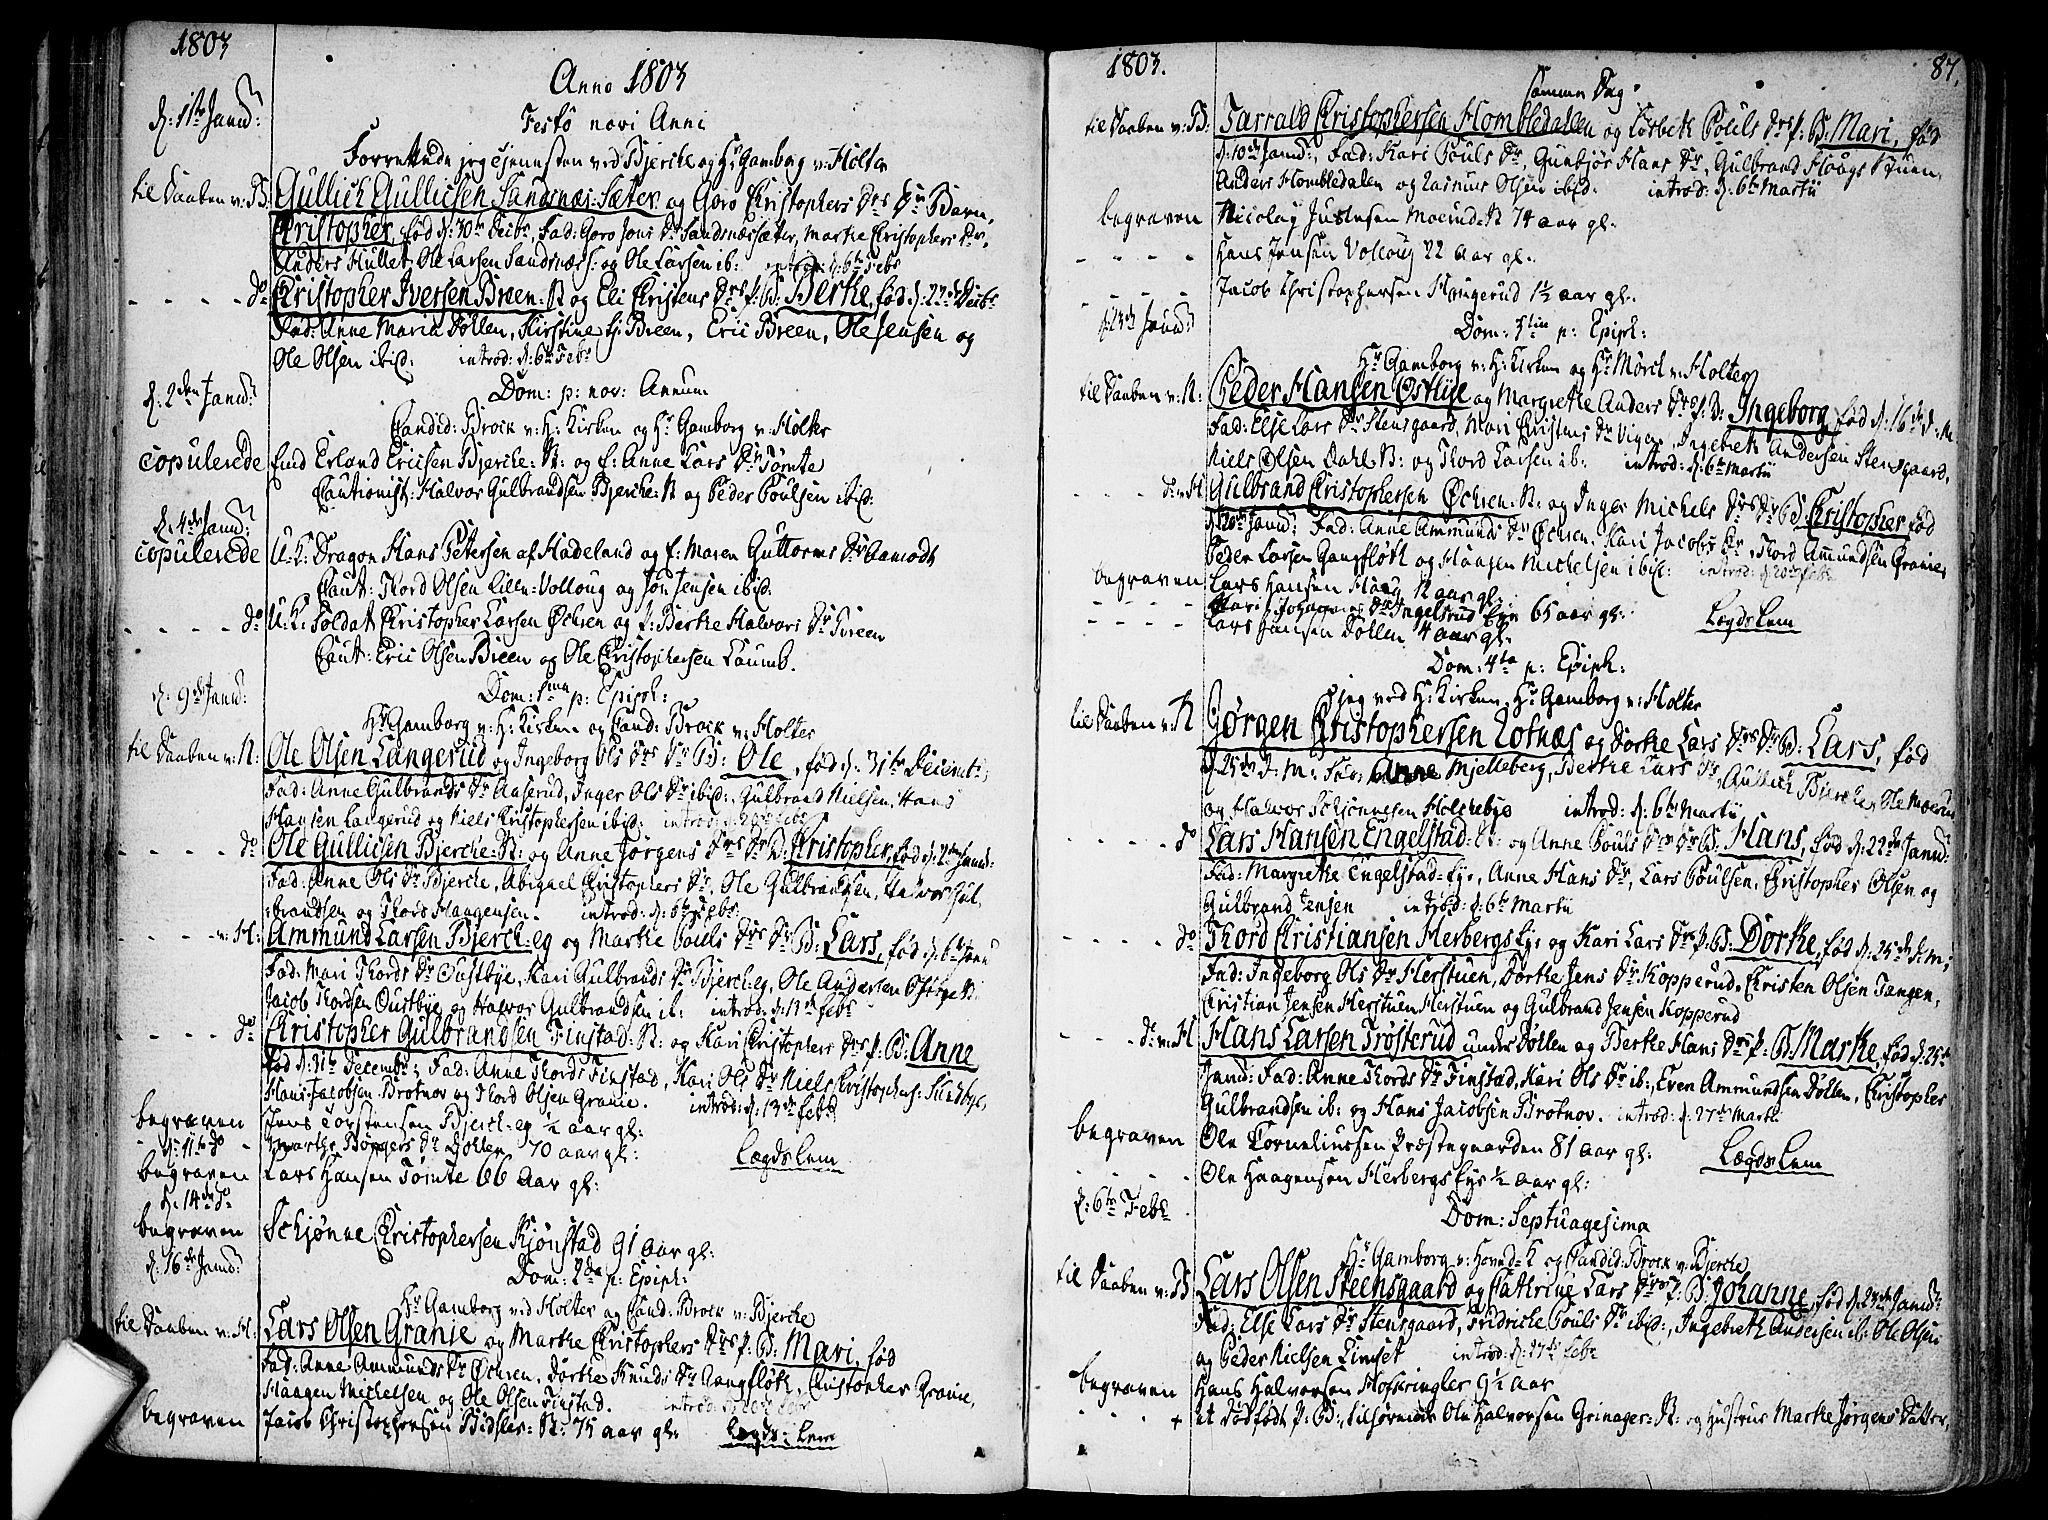 1803
Anno 1803
d: 1ste Janv:
Festo novi Anni
Forrettede jeg tjenesten ved Bjercke og Hr Gamborg v: Holter
til Daaben v: B: Gullich Gullicsen Sandsnæs-Sæter og Goro Christophers Drs Dr Barn,
Christopher, fød d: 30te Decbr. Fad: Goro Jons Dr Sandsnæssæter, Marthe Christophers Dr,
Anders Hullet, Ole Larsen Sandsnæs: og Ole Larsen ib: introd: d: 6te Febr
- - - - do Christopher Iversen Breen: N og Eli Christens Drs p: B: Berthe, fød d: 22de Decbr
Fad: Anne Maria Døllen, Kirstine Breen, Eric Breen, Ole Jensen og
Ole Olsen ibid: introd: d: 6te Febr
d: 2den Janv:
Dom: p: nov: Annum
Candid: Brock v: H: Kirken og Hr Gamborg v: Holter
copulerede Erland Ericsen Bjercke: N: og f: Anne Lars Dr Tømte
Cautionist: Halvor Gulbrandsen Bjercke: N og Peder Poulsen ibid:
d: 4de Janv:
copulerede U: K: Dragon Hans Pettersen af Hadeland og f: Maren Guttorms Dr Aamodt
Caut: Thord Olsen Lilen-Volloug og Jon Jensen ibid.
- - - - do U: K: Soldat Christopher Larsen Øchren og p: Berthe Halvors Dr Breen
Caut: Eric Olsen Breen og Ole Christophersen Laumb.
d: 9de Janv:
Dom: 1ma p: Epiph:
Hr Gamborg v: H: Kirken og Cand: Brock v: Holter
til Daaben v: N: Ole Olsen Langerud og Ingeborg Ols Drs Dr B: Ole, fød d: 31te Decemb:
Fad: Anne Gulbrands Dr Aaserud, Inger Ols Dr ibid:, Gulbrand Nielsen, Hans
Hansen Langerud og Niels Christophersen ibid: introd: d: 20de Febr
- - - - do Ole Gullicsen Bjercke: N: og Anne Jørgens Drs Dr B: Christopher, fød d: 2de Janv:
Fad: Anne Ols Dr Bjercke, Abigael Christophers Dr, Ole Gulbrandsen, Halvor Gul,
brandsen og Thord Haagensen. introd: d: 6te Febr
- - - - v: H: Ammund Larsen Bjerch-eg og Marthe Pouls Drs Dr B: Lars, fød d: 6te Janv
Fad: Mari Thords Dr Oustbye, Kari Gulbrands Dr Bjerch-eg, Ole Andersen
Jacob Thordsen Oustbye og Halvor Gulbrandsen ib: introd: d: 13de Febr
- - - - do Christopher Gulbrandsen Finstad: N: og Kari Christophers Drs p: B: Anne
fød d: 31te Decembr; Fad: Anne Thords Finstad, Kari Ols Dr Niels Christophers: Sundbye,
Hans Jacobsen Brotnov og Thord Olsen Granie. introd: d: 13de Febr
begraven Jens Torstensen Bjerch-eg 1/2 aar gl:
d: 11te do Marthe Børgers Dr Døhlen 70 aar gl: Lægdslem
begraven Lars Hansen Tømte 66 Aar gl:
d: 14de do
begraven Schjønne Christophersen Kjønstad 91 aar gl:
d: 16de Janv:
Dom: 2da p: Epiph:
Hr Gamborg ved Holter og Cand: Brock v: Bjercke
til Daaben v: H: Lars Olsen Granie og Marthe Christophers Drs p: B: Mari, fød
Fad: Anne Ammunds Dr Øchren, Dorthe Knuds Dr Gangfløth, Christopher Granie,
Haagen Michelsen og Ole Olsen Finstad. introd: d: 20de Febr
begraven Jacob Christophersen Bidsler: N: 75 aar gl: Lægds-Lem
1803. 87.
Samme Dag.
til Daaben v: B: Tarrald Christophersen Hombledalen og Lisbeth Pouls Drs p: B: Mari, fød
d: 10de Janv:, Fad: Kari Pouls Dr, Gunbjør Hans Dr, Gulbrand Haugs Stuen,
Anders Hombledalen og Rasmus Olsen ibid. introd: d: 6te Martii
begraven Nicolay Justesen Moerud: N 74 aar gl:
- - - - Hans Jensen Volloug 22 aar gl:
- - - - Jacob Christophersen Hongerud 1 1/2 aar gl:
d: 23de Janv:
Dom: 3tia p: Epiph:
Hr Gamborg v: H: Kirken og Hr Mörch v: Holter
til Daaben v: N: Peder Hansen Østbye og Margrethe Anders Drs p: B: Ingeborg, fød d: 16de d: M
Fad: Else Lars Dr Stensgaard, Mari Christens Dr Viger, Ingebreth Andersen Stensgaard,
Niels Olsen Dahl N: og Thord Larsen ib: introd: d: 6te Martii
- - - - do v: H Gulbrand Christophersen Øchren: N: og Inger Michels Drs Dr B: Christopher fød
d: 20de Janv: Fad: Anne Ammunds Dr Øchren, Kari Jacobs Dr, Thord Ammundsen Granie,
Peder Larsen Gangfløth og Haagen Michelsen ibid: introd: d: 20de Febr
begraven Lars Hansen Haug 12 aar gl:
- - - - Kari Johannes Dr Ingelsrud Eye 65 aar gl: Lægdslem
- - - - Lars Hansen Døllen 4 aar gl:
Dom: 4ta p: Epiph:
jeg ved H: Kirken, Hr Gamborg v: Holter
til Daaben v: N Jørgen Christophersen Rotnæs og Dorthe Lars Drs Dr B: Lars, fød
d. 25de d: M: Fad: Anne Mjelleberg, Berthe Lars Dr, Gullich Bjercke, Ole Moerud
og Halvor Schjønnesen Holckebye introd: d: 6te Martii
- - - - do Lars Hansen Engelstad: N: og Anne Pouls Drs Dr B: Hans, fød d: 22de Janv:
Fad: Margrethe Engelstad-Eye, Anne Hans Dr, Lars Poulsen, Christopher Olsen og
Gulbrand Jensen introd: d: 6te Martii
- - - - do Thord Christiansen Herbergs Eye og Kari Lars Drs p: B: Dorthe, fød d: 25de d: M:
Fad: Ingeborg Ols Dr Herstuen, Dorthe Jens Dr Kopperud, Christen Olsen Tangen,
Christian Jensen Herstuen Herstuen og Gulbrand Jensen Kopperud
- - - do v: H Hans Larsen Trøsterud under Døllen og Berthe Hans Drs p: B: Marthe, fød d: 25de
Janv: Fad: Anne Thords Dr Finstad, Kari Ols Dr ib:, Even Ammundsen Døllen, Christopher
Gulbrandsen ib: og Hans Jacobsen Brotnov. introd: d: 27de Martii
begraven Ole Corneliussen Præstegaarden 81 aar gl: Lægdslem
- - - - Ole Haagensen Herbergs Eye 1/2 aar gl:
d: 6te Febr
Dom: Septuagesima
Hr Gamborg v: Hoved-K og Candid: Brock v: Bjercke
til Daaben v: B Lars Olsen Steensgaard og Cathrine Lars Drs p: B: Johanne, fød d: 24de Janv:
Fad: Else Lars Dr Stensgaard, Fridriche Pouls Dr ibid:, Ingebreth Andersen ib: Ole Olsen
og Peder Nielsen Limset introd: d: 27de Febr
begraven Hans Halvorsen Hofkringler 9 1/2 aar
- - - - + et dødfødt p: B:, tilhørende Ole Halvorsen Grinager: N: og Hustrue Marthe Jørgens Datter,